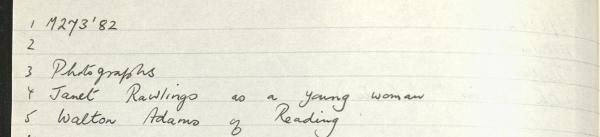 1 M273'82
2
3 Photographs
4 Janet Rawlings as a young woman
5 Walton Adams of Reading